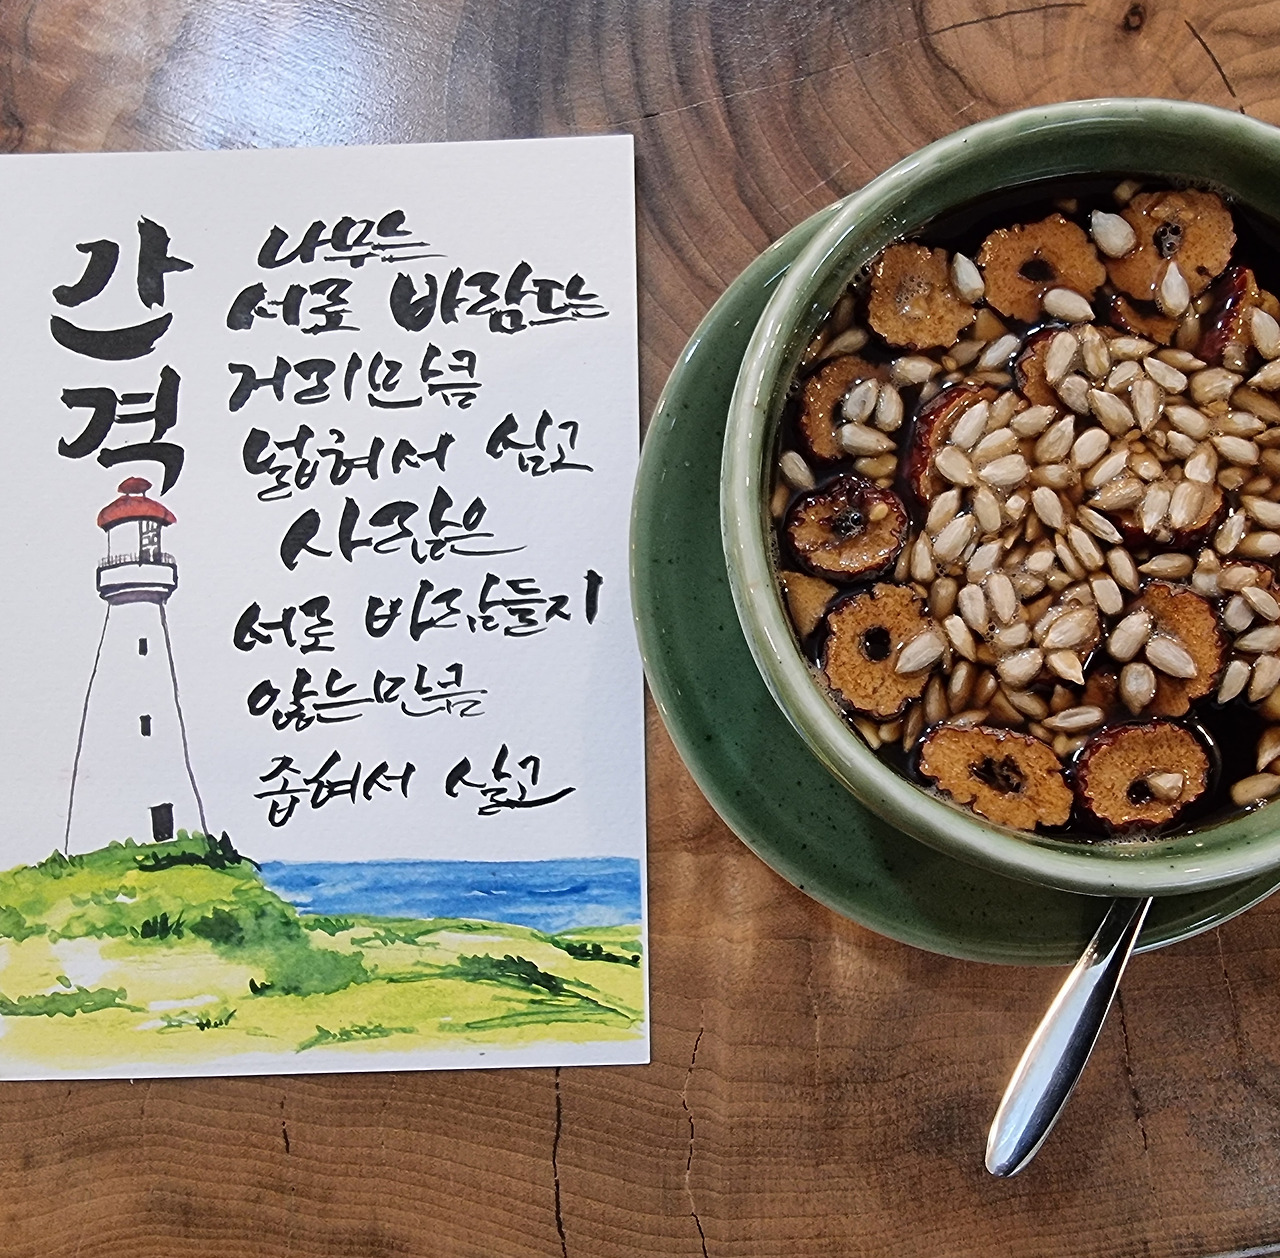 간격
나무는
서로 바람드는
거리만큼
넓혀서 심고
사람은
서로 바람들지
않는만큼
좁혀서 살고